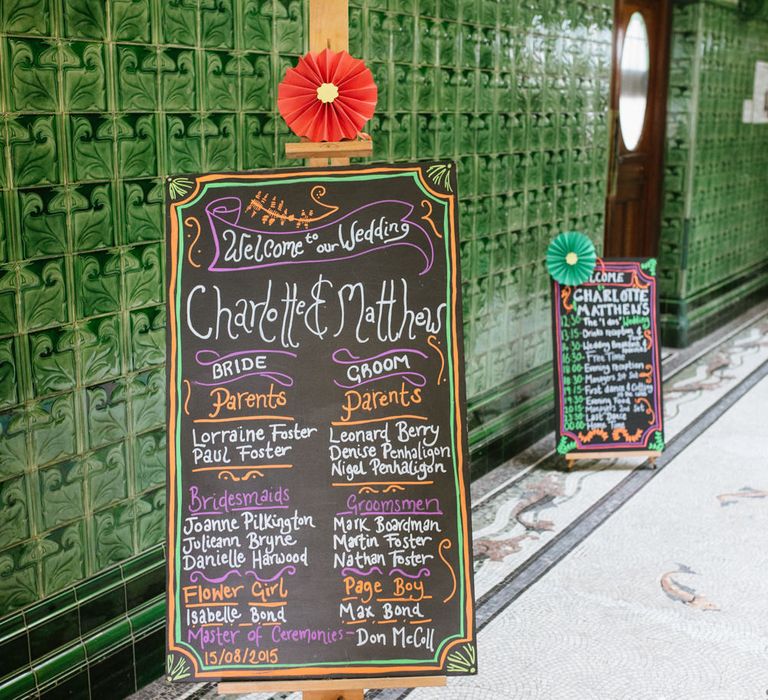 Welcome to our Wedding
Charlotte & Matthew
BRIDE
GROOM
Parents
Parents
Lorraine Foster
Paul Foster
Leonard Berry
Denise Penhaligon
Nigel Penhaligon
Bridesmaids
Groomsmen
Joanne Pilkington
Julieann Bryne
Danielle Harwood
Mark Boardman
Martin Foster
Nathan Foster
Flower Girl
Page Boy
Isabelle Bond
Max Bond
Master of Ceremonies - Don McColl
15/08/2015
WELCOME
CHARLOTTE
MATTHEW
12:30 The 'I dos' Wedding
13:15 Drinks Reception &
Wedding Breakfast
Free Time
Evening Reception
Managers 1st Set
First dance & Cutting
Evening Food
Managers 2nd Set
Last Dance
00:00 Home Time